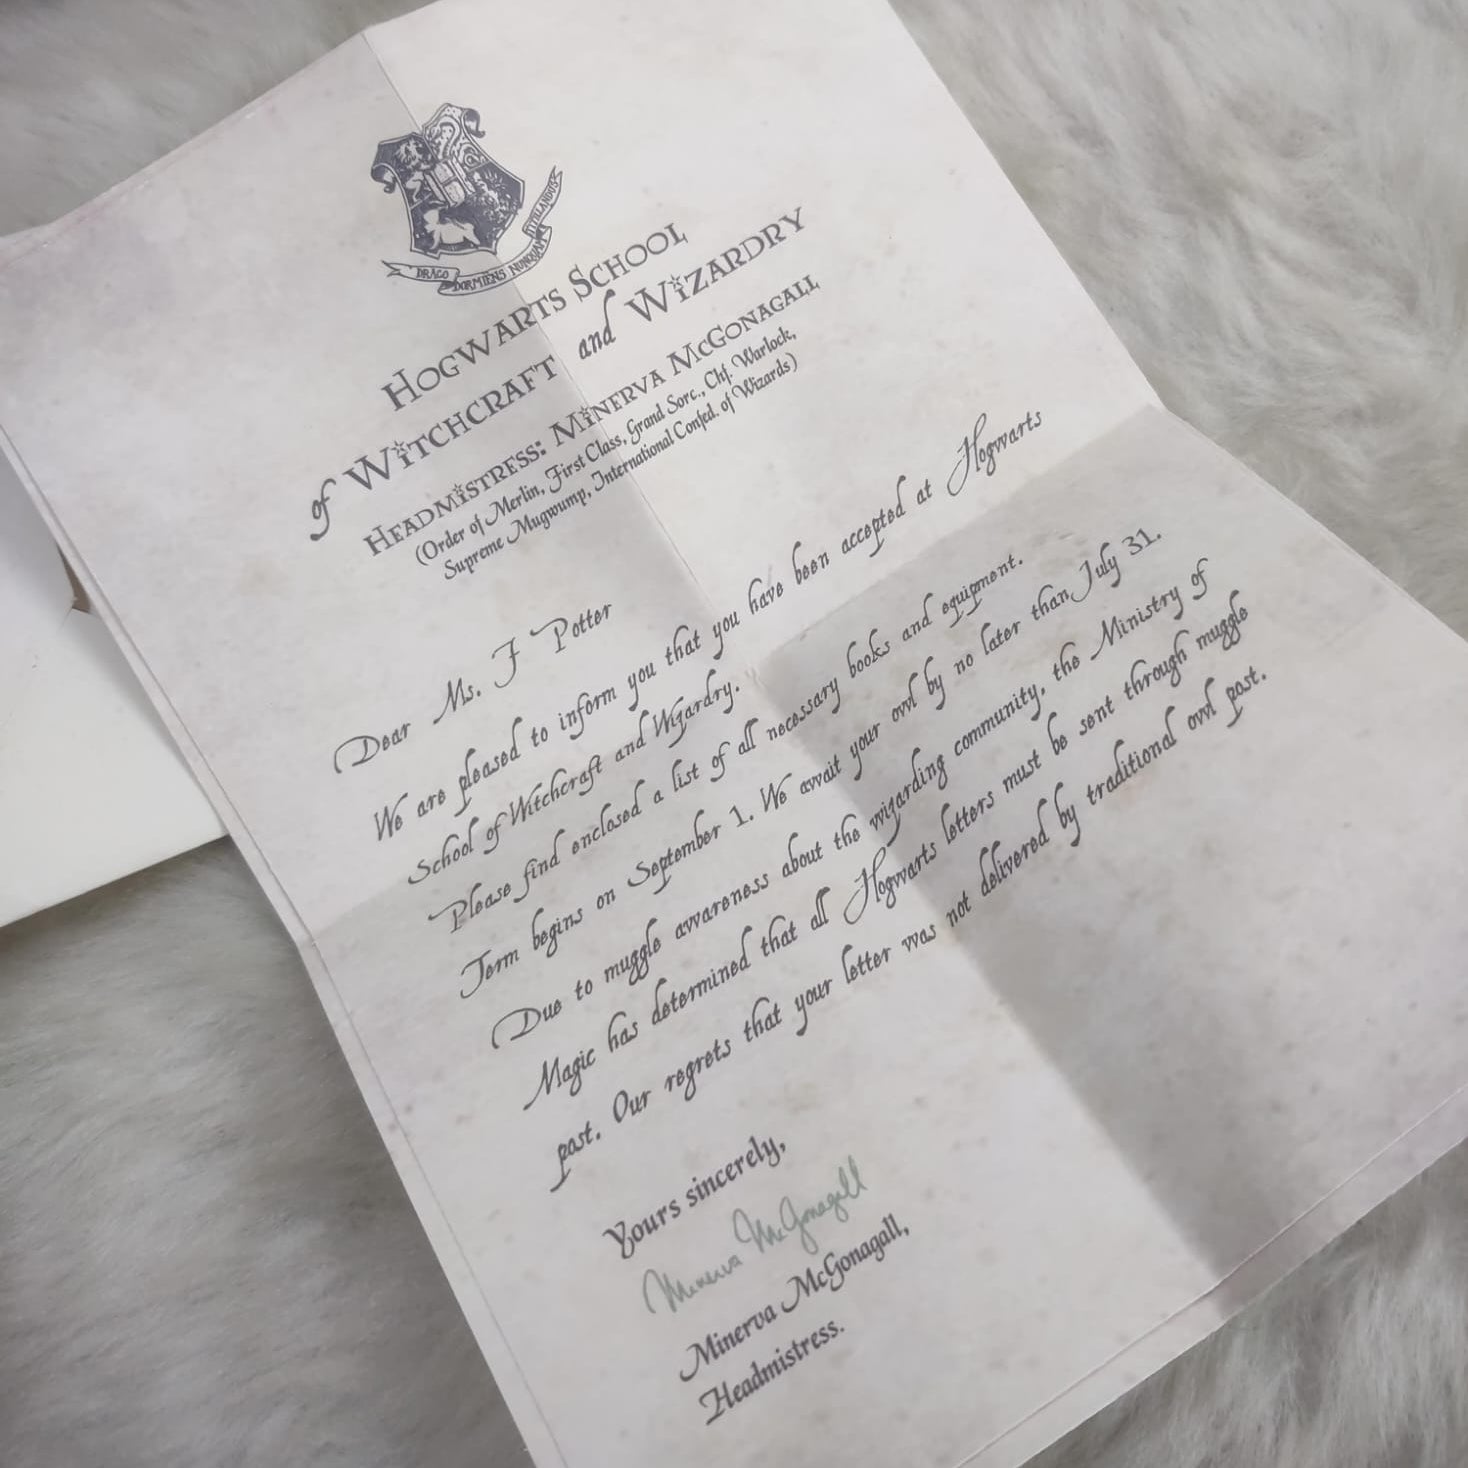 DRACO DORMIENS NUNQUAM TITILLANDUS
HOGWARTS SCHOOL
of WITCHCRAFT and WIZARDRY
HEADMISTRESS: MINERVA McGONAGALL
(Order of Merlin, First Class, Grand Sorc., Chf. Warlock,
Supreme Mugwump, International Confed. of Wizards)
Dear Ms. F Potter
We are pleased to inform you that you have been accepted at Hogwarts
School of Witchcraft and Wizardry.
Please find enclosed a list of all necessary books and equipment.
Term begins on September 1. We await your owl by no later than July 31.
Due to muggle awareness about the wizarding community, the Ministry of
Magic has determined that all Hogwarts letters must be sent through muggle
post. Our regrets that your letter was not delivered by traditional owl post.
Yours sincerely,
Minerva McGonagall
Minerva McGonagall,
Headmistress.